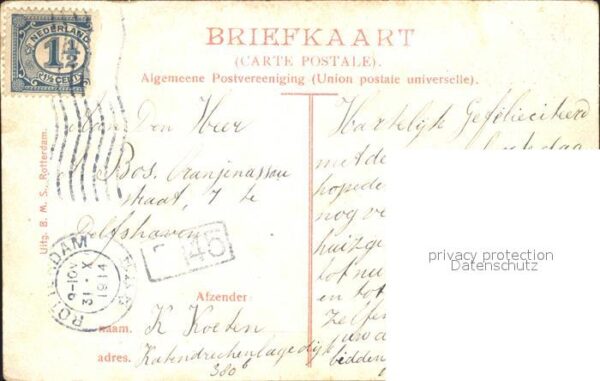 NEDERLAND
1½
1½ CENT
BRIEFKAART
(CARTE POSTALE).
Algemeene Postvereeniging (Union postale universelle).
Uitg. B. M. S., Rotterdam.
Aan Den Heer
Bos. Oranjenassau
straat, 7 te
Delfshaven
ROTTERDAM
13 . X
1914
45
Afzender:
naam. K Koeten
adres. Katendrechenlagedijk
380 b
Hartelijk Gefelieciteerd
met de
hopede
nog ve
huizge
tot nu
en tot
Zelfer
bidden
privacy protection
Datenschutz